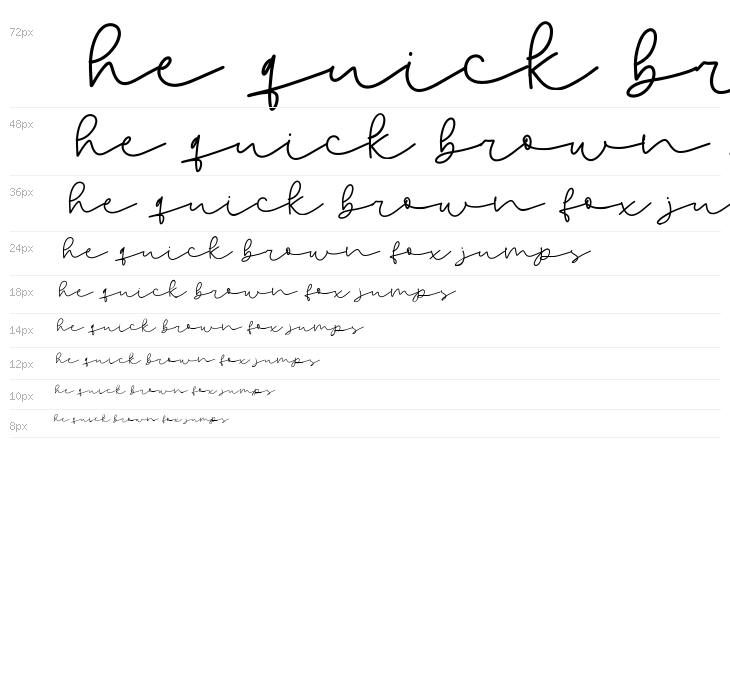 72px he quick br
48px he quick brown
36px he quick brown fox ju
24px he quick brown fox jumps
18px he quick brown fox jumps
14px he quick brown fox jumps
12px he quick brown fox jumps
10px he quick brown fox jumps
8px he quick brown fox jumps